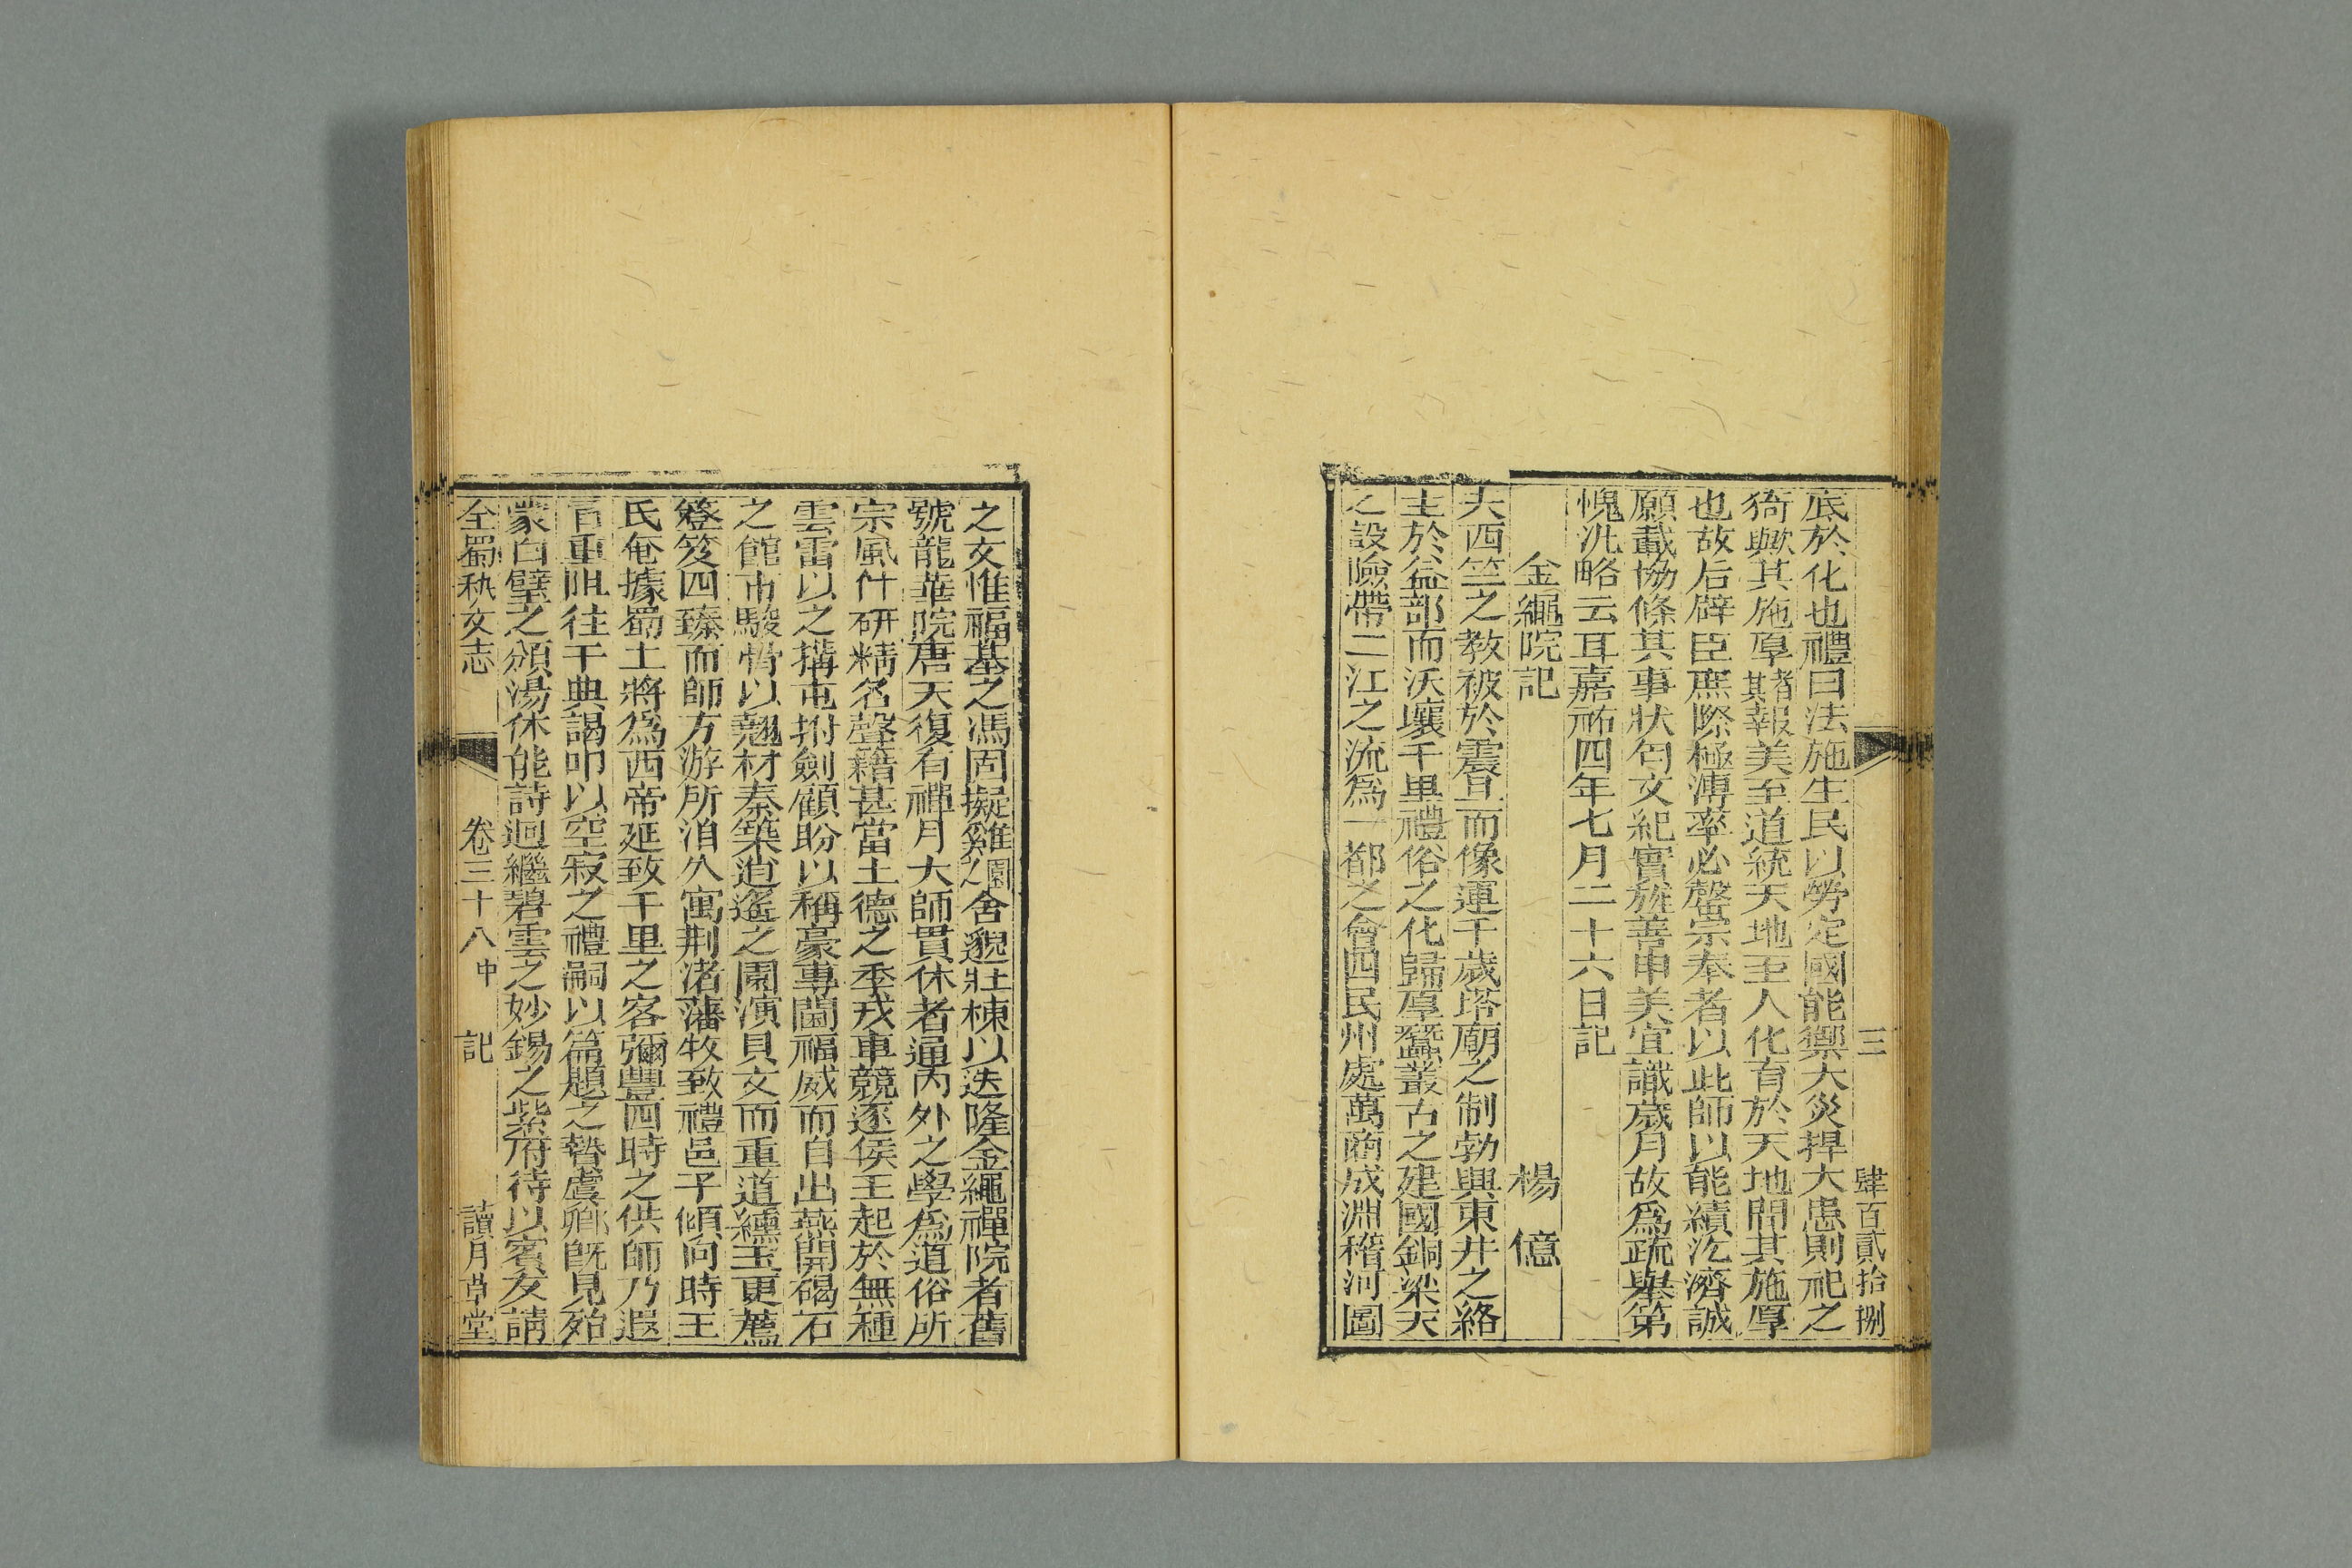 三 肆百貳拾捌
底於化也禮曰法施生民以勞定國能禦大災捍大患則祀之
猗歟其施厚者其報美至道統天地至人化育於天地間其施厚
也故后辟臣庶際極溥率必罄宗奉者以此師以能績汔濟誠
願載協條其事狀匄文紀實旌善申美宜識歲月故爲疏舉第
愧沘略云耳嘉祐四年七月二十六日記
金繩院記 楊億
夫西竺之教被於震旦而像運千歲塔廟之制勃興東井之絡
主於益部而沃壤千里禮俗之化歸厚蠶叢古之建國銅梁天
之設險帶二江之流爲一都之會四民州處萬商成淵稽河圖
之文惟福基之馮固擬雞園人舍邈壯棟以迭隆金繩禪院者舊
號龍華院唐天復有禪月大師貫休者通內外之學爲道俗所
宗風什研精名聲籍甚當土德之季戎車競逐侯王起於無種
雲雷以之搆屯拊劍顧盼以稱豪專閫福威而自出燕開碣石
之館市駿骨以翹材秦築逍遙之園演貝文而重道纁玉更薦
簦笈四臻而師方游所洎久寓荆渚藩牧致禮邑子傾向時王
氏奄據蜀土將爲西帝延致千里之客彌豐四時之供師乃遐
冒重阻往干典謁叩以空寂之禮嗣以篇題之贄虞鄉旣見殆
蒙白璧之頒湯休能詩迴繼碧雲之妙錫之紫府待以賓友請
全蜀秇文志 卷三十八中 記 讀月草堂